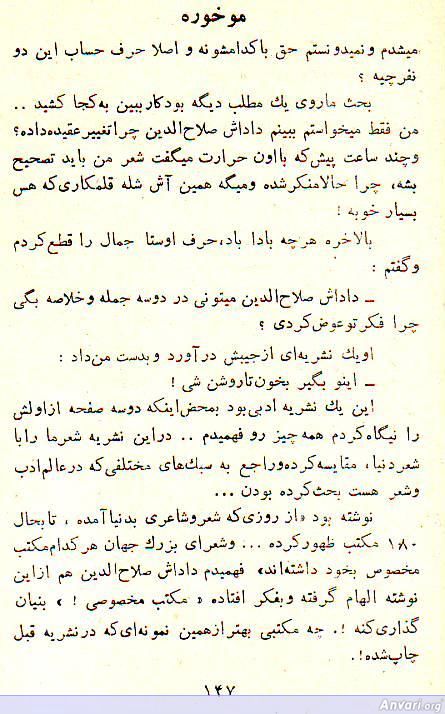 موخوره
میشدم و نمیدونستم حق با کدامشونه و اصلا حرف حساب این دو
نفر چیه ؟
بحث ما روی یك مطلب دیگه بود کار ببین به کجا کشید ..
من فقط میخواستم ببینم داداش صلاح‌الدین چرا تغییر عقیده داده؟
و چند ساعت پیش که با اون حرارت میگفت شعر من باید تصحیح
بشه، چرا حالا منکر شده و میگه همین آش شله قلمکاری که هس
بسیار خوبه !
بالاخره هر چه بادا باد، حرف اوستا جمال را قطع کردم
و گفتم :
ـ داداش صلاح‌الدین میتونی در دو سه جمله و خلاصه بگی
چرا فکر تو عوض کردی ؟
او یك نشریه‌ای از جیبش در آورد و بدست من داد :
ـ اینو بگیر بخون تا روشن شی !
این یك نشریه ادبی بود بمحض اینکه دو سه صفحه از اولش
را نیگاه کردم همه چیز رو فهمیدم .. در این نشریه شعر ما را با
شعر دنیا، مقایسه کرده و راجع به سبك‌های مختلفی که در عالم ادب
و شعر هست بحث کرده بودن ...
نوشته بود «از روزی که شعر و شاعری بدنیا آمده ، تا بحال
۱۸۰ مکتب ظهور کرده ... و شعرای بزرك جهان هر کدام مکتب
مخصوص بخود داشته‌اند» فهمیدم داداش صلاح‌الدین هم از این
نوشته الهام گرفته و بفکر افتاده « مکتب مخصوصی ! » بنیان
گذاری کنه !. چه مکتبی بهتر از همین نمونه‌ای که در نشریه قبل
چاپ شده!.
۱۴۷
Anvari.org